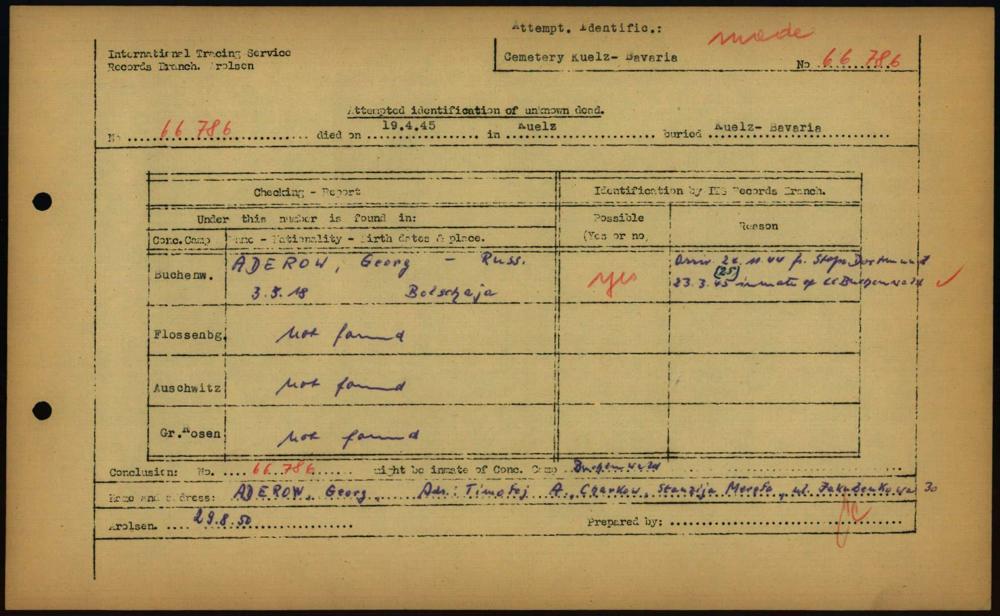 Attempt. Identific.: made
International Tracing Service
Records Branch. Arolsen
Cemetery Kuelz- Bavaria
No 66 786
Attempted identification of unknown dead.
No 66 786 died on 19.4.45 in Kuelz buried Kuelz- Bavaria
Checking - Report
Identification by ITS Records Branch.
Under this number is found in:
Possible (Yes or no)
Reason
Conc.Camp Name - Nationality - Birth dates & place.
Buchenw. ADEROW, Georg - Russ.
3.5.18 Bolschaja
yes
20.11.44 fr. Dortmund
23.3.45 (25) inmate of CC Buchenwald
Flossenbg. not found
Auschwitz not found
Gr.Rosen not found
Conclusion: No. 66 786 might be inmate of Conc. Camp Buchenwald
Name and address: ADEROW, Georg, Adr.: Timofej A., Charkow, Stanzija Merefa, ul. 30
Arolsen. 29.8.50 Prepared by: